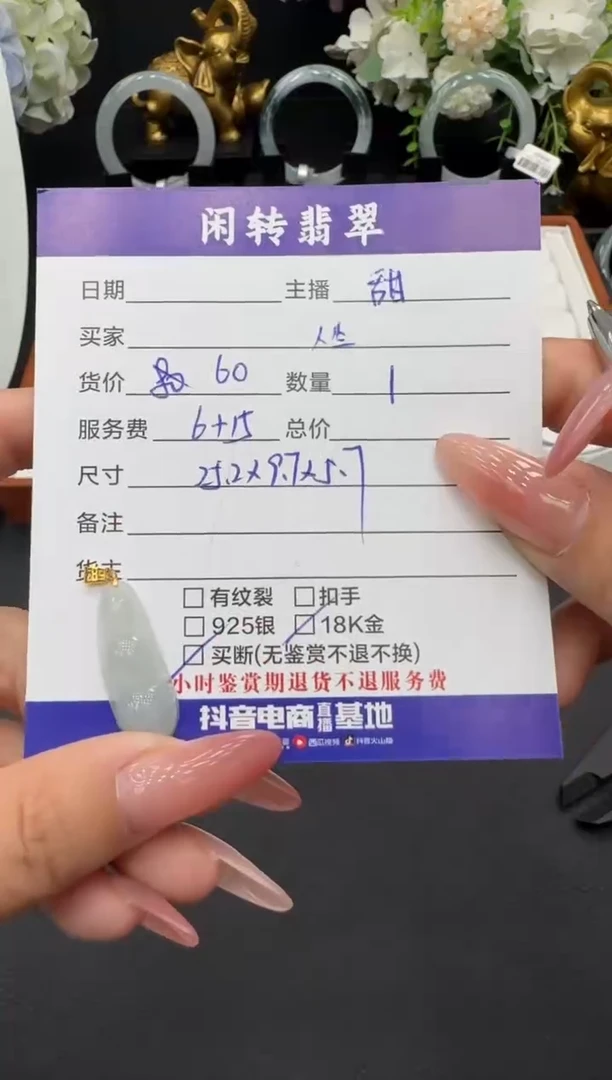 闲转翡翠
日期 主播 甜
买家
货价 60 数量 1
服务费 6+15 总价
尺寸 25.2x9.7x5.7
备注
货主
□ 有纹裂 □ 扣手
□ 925银 □ 18K金
□ 买断(无鉴赏不退不换)
小时鉴赏期退货不退服务费
抖音电商直播基地
西瓜视频 抖音火山版